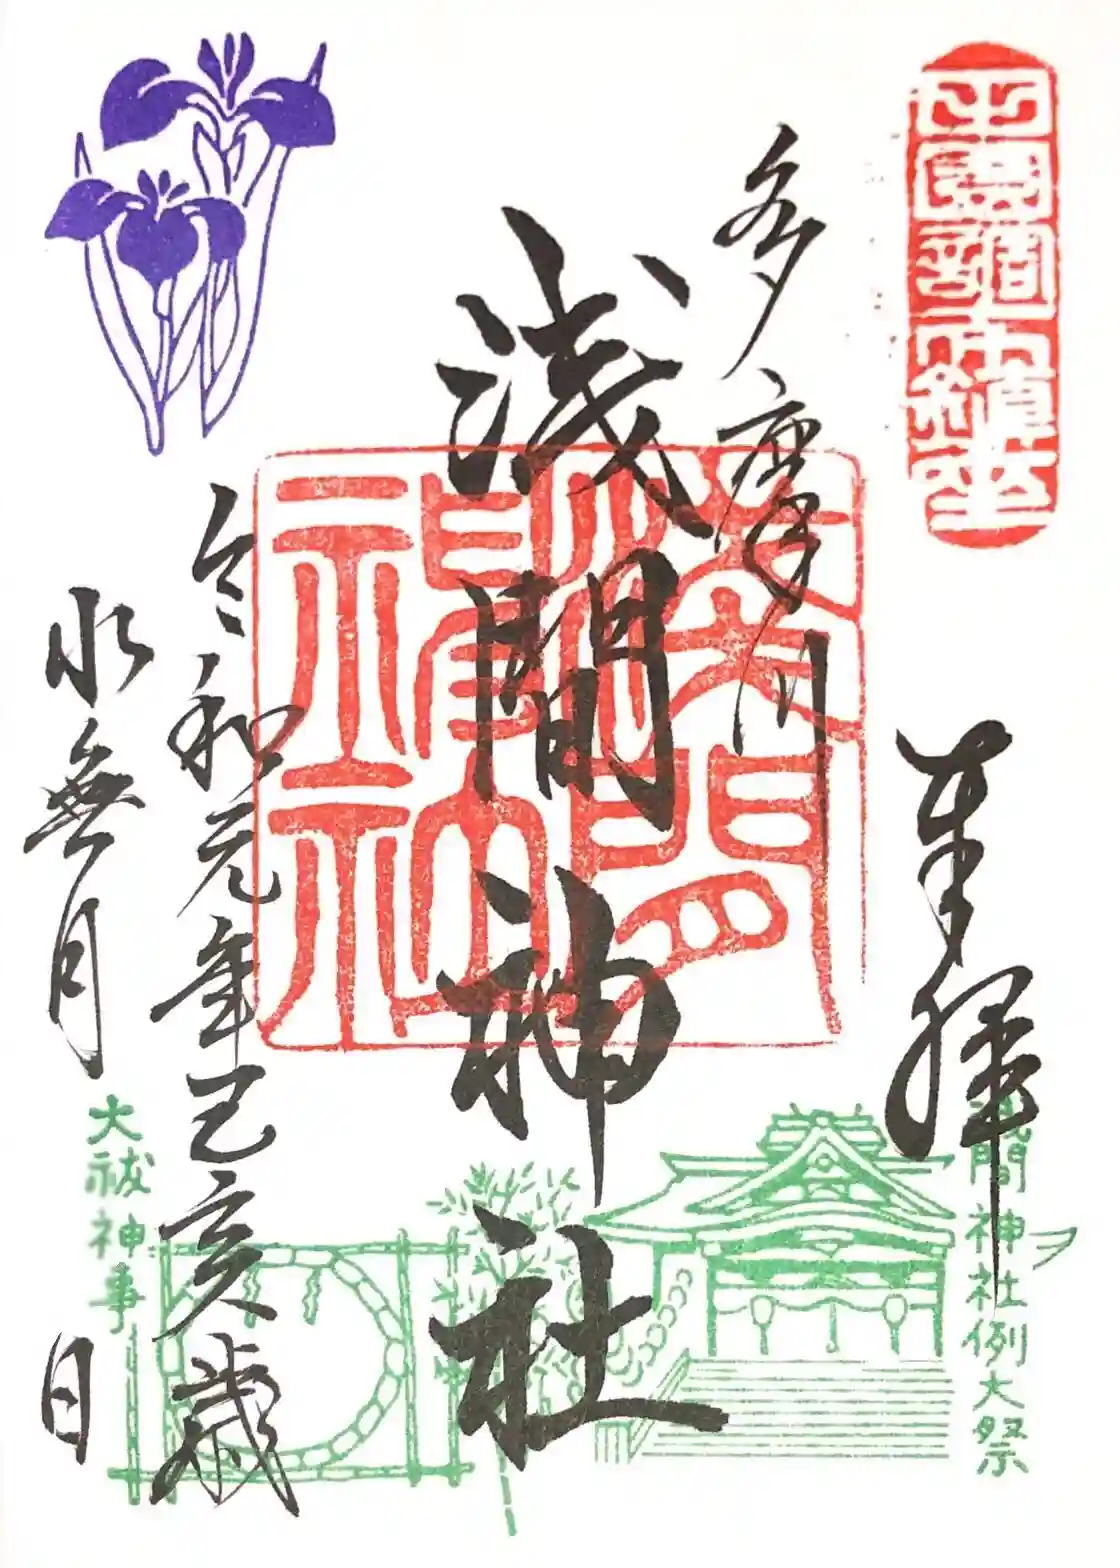 奉拝
多摩川
浅間神社
令和元年己亥歳
水無月
日
浅間神社例大祭
大祓神事